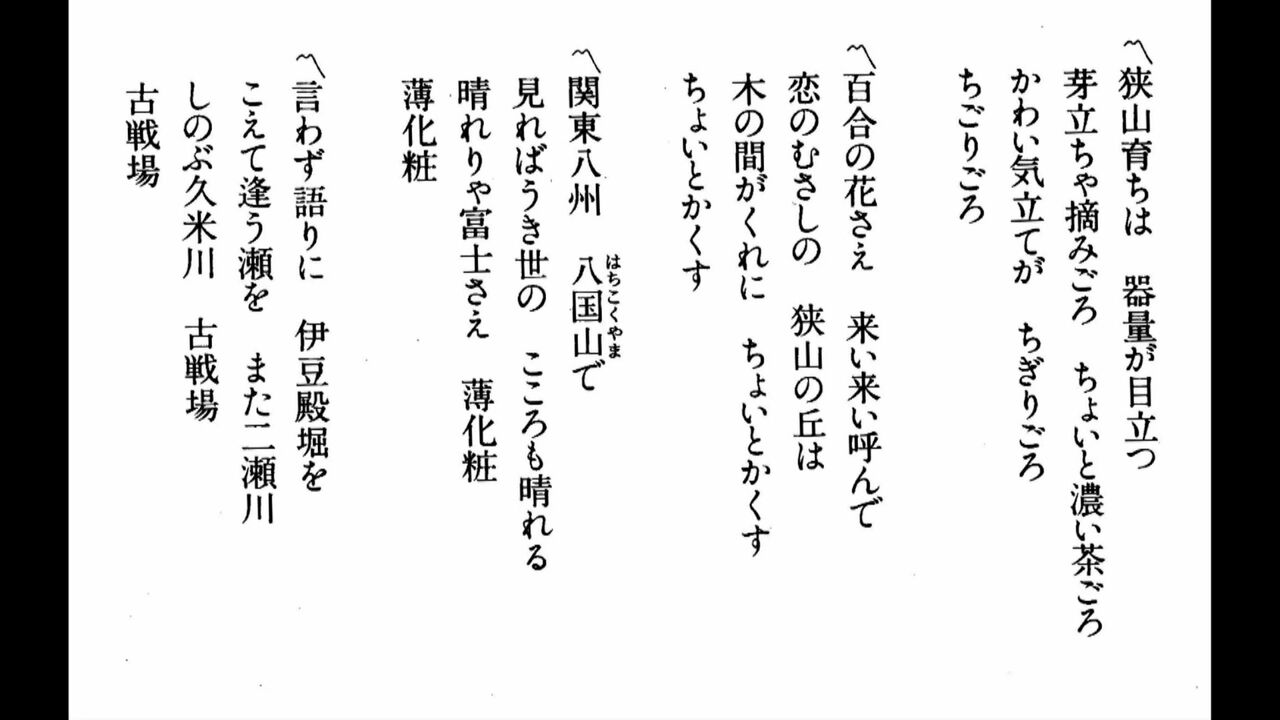 〽狭山育ちは　器量が目立つ
芽立ちゃ摘みごろ　ちょいと濃い茶ごろ
かわい気立てが　ちぎりごろ
ちごりごろ
〽百合の花さえ　来い来い呼んで
恋のむさしの　狭山の丘は
木の間がくれに　ちょいとかくす
ちょいとかくす
〽関東八州　八国山で
はちこくやま
見ればうき世の　こころも晴れる
晴れりゃ富士さえ　薄化粧
薄化粧
〽言わず語りに　伊豆殿堀を
こえて逢う瀬を　また二瀬川
しのぶ久米川　古戦場
古戦場